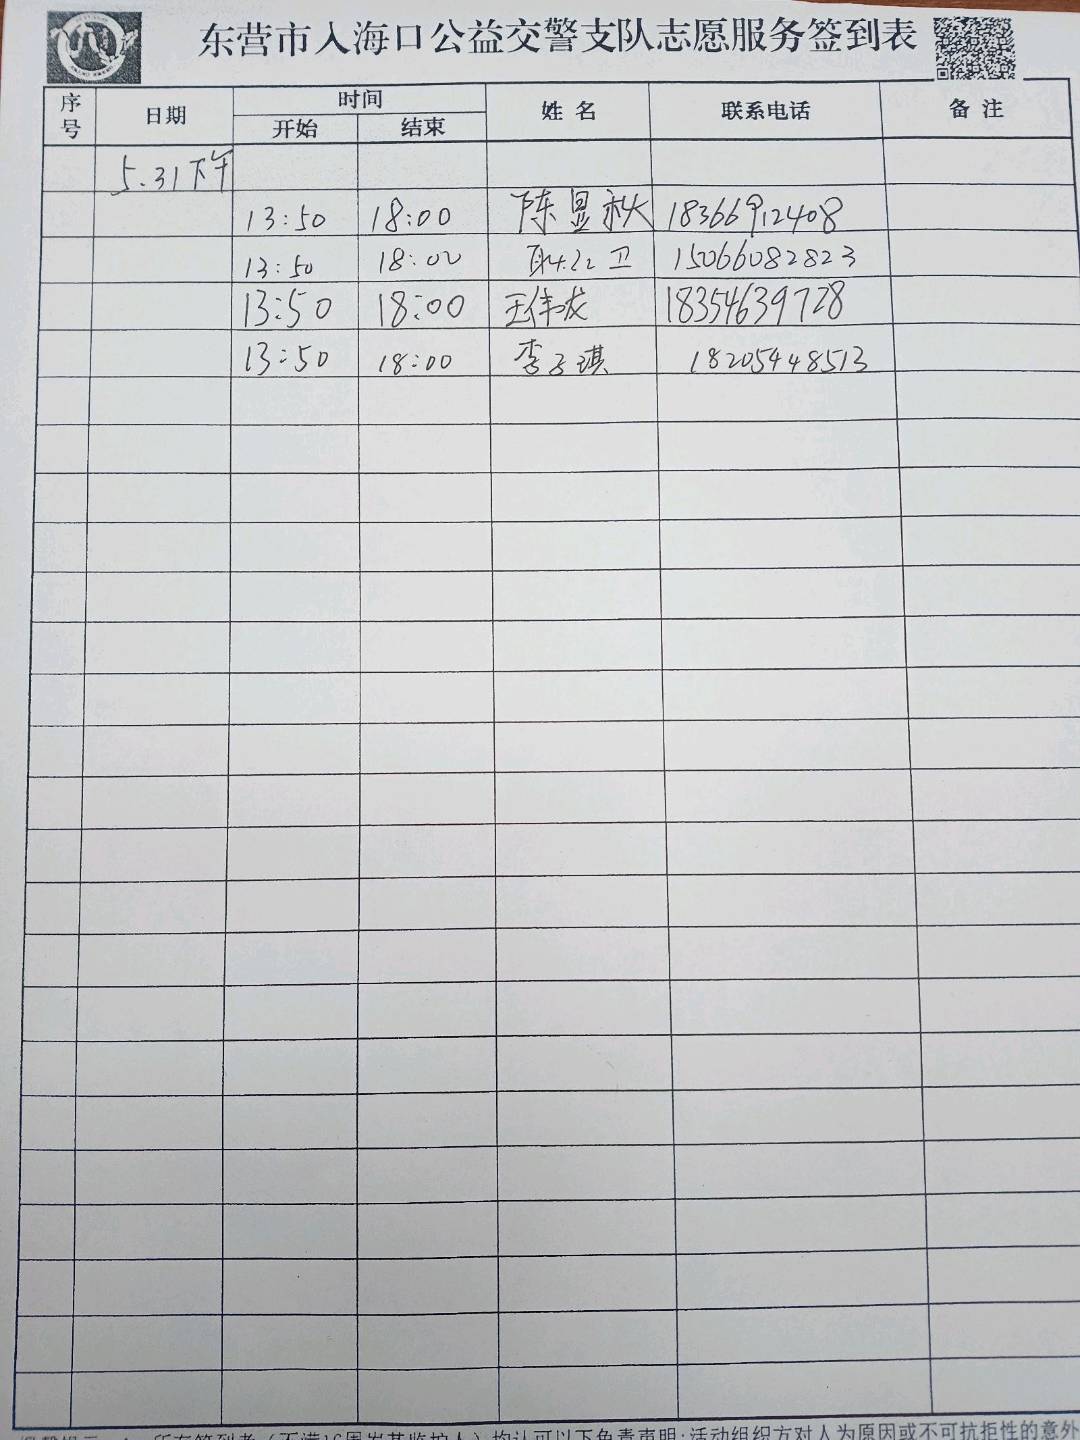 东营市入海口公益交警支队志愿服务签到表
序号 日期 时间 姓名 联系电话 备注
开始 结束
5.31下午
13:50 18:00 陈显秋 18366912408
13:50 18:00 卫 15066082823
13:50 18:00 王伟 18354639728
13:50 18:00 李子琪 18205448513
所有签到者(不满16周岁其监护人)均认可以下免责声明:活动组织方对人为原因或不可抗拒性的意外